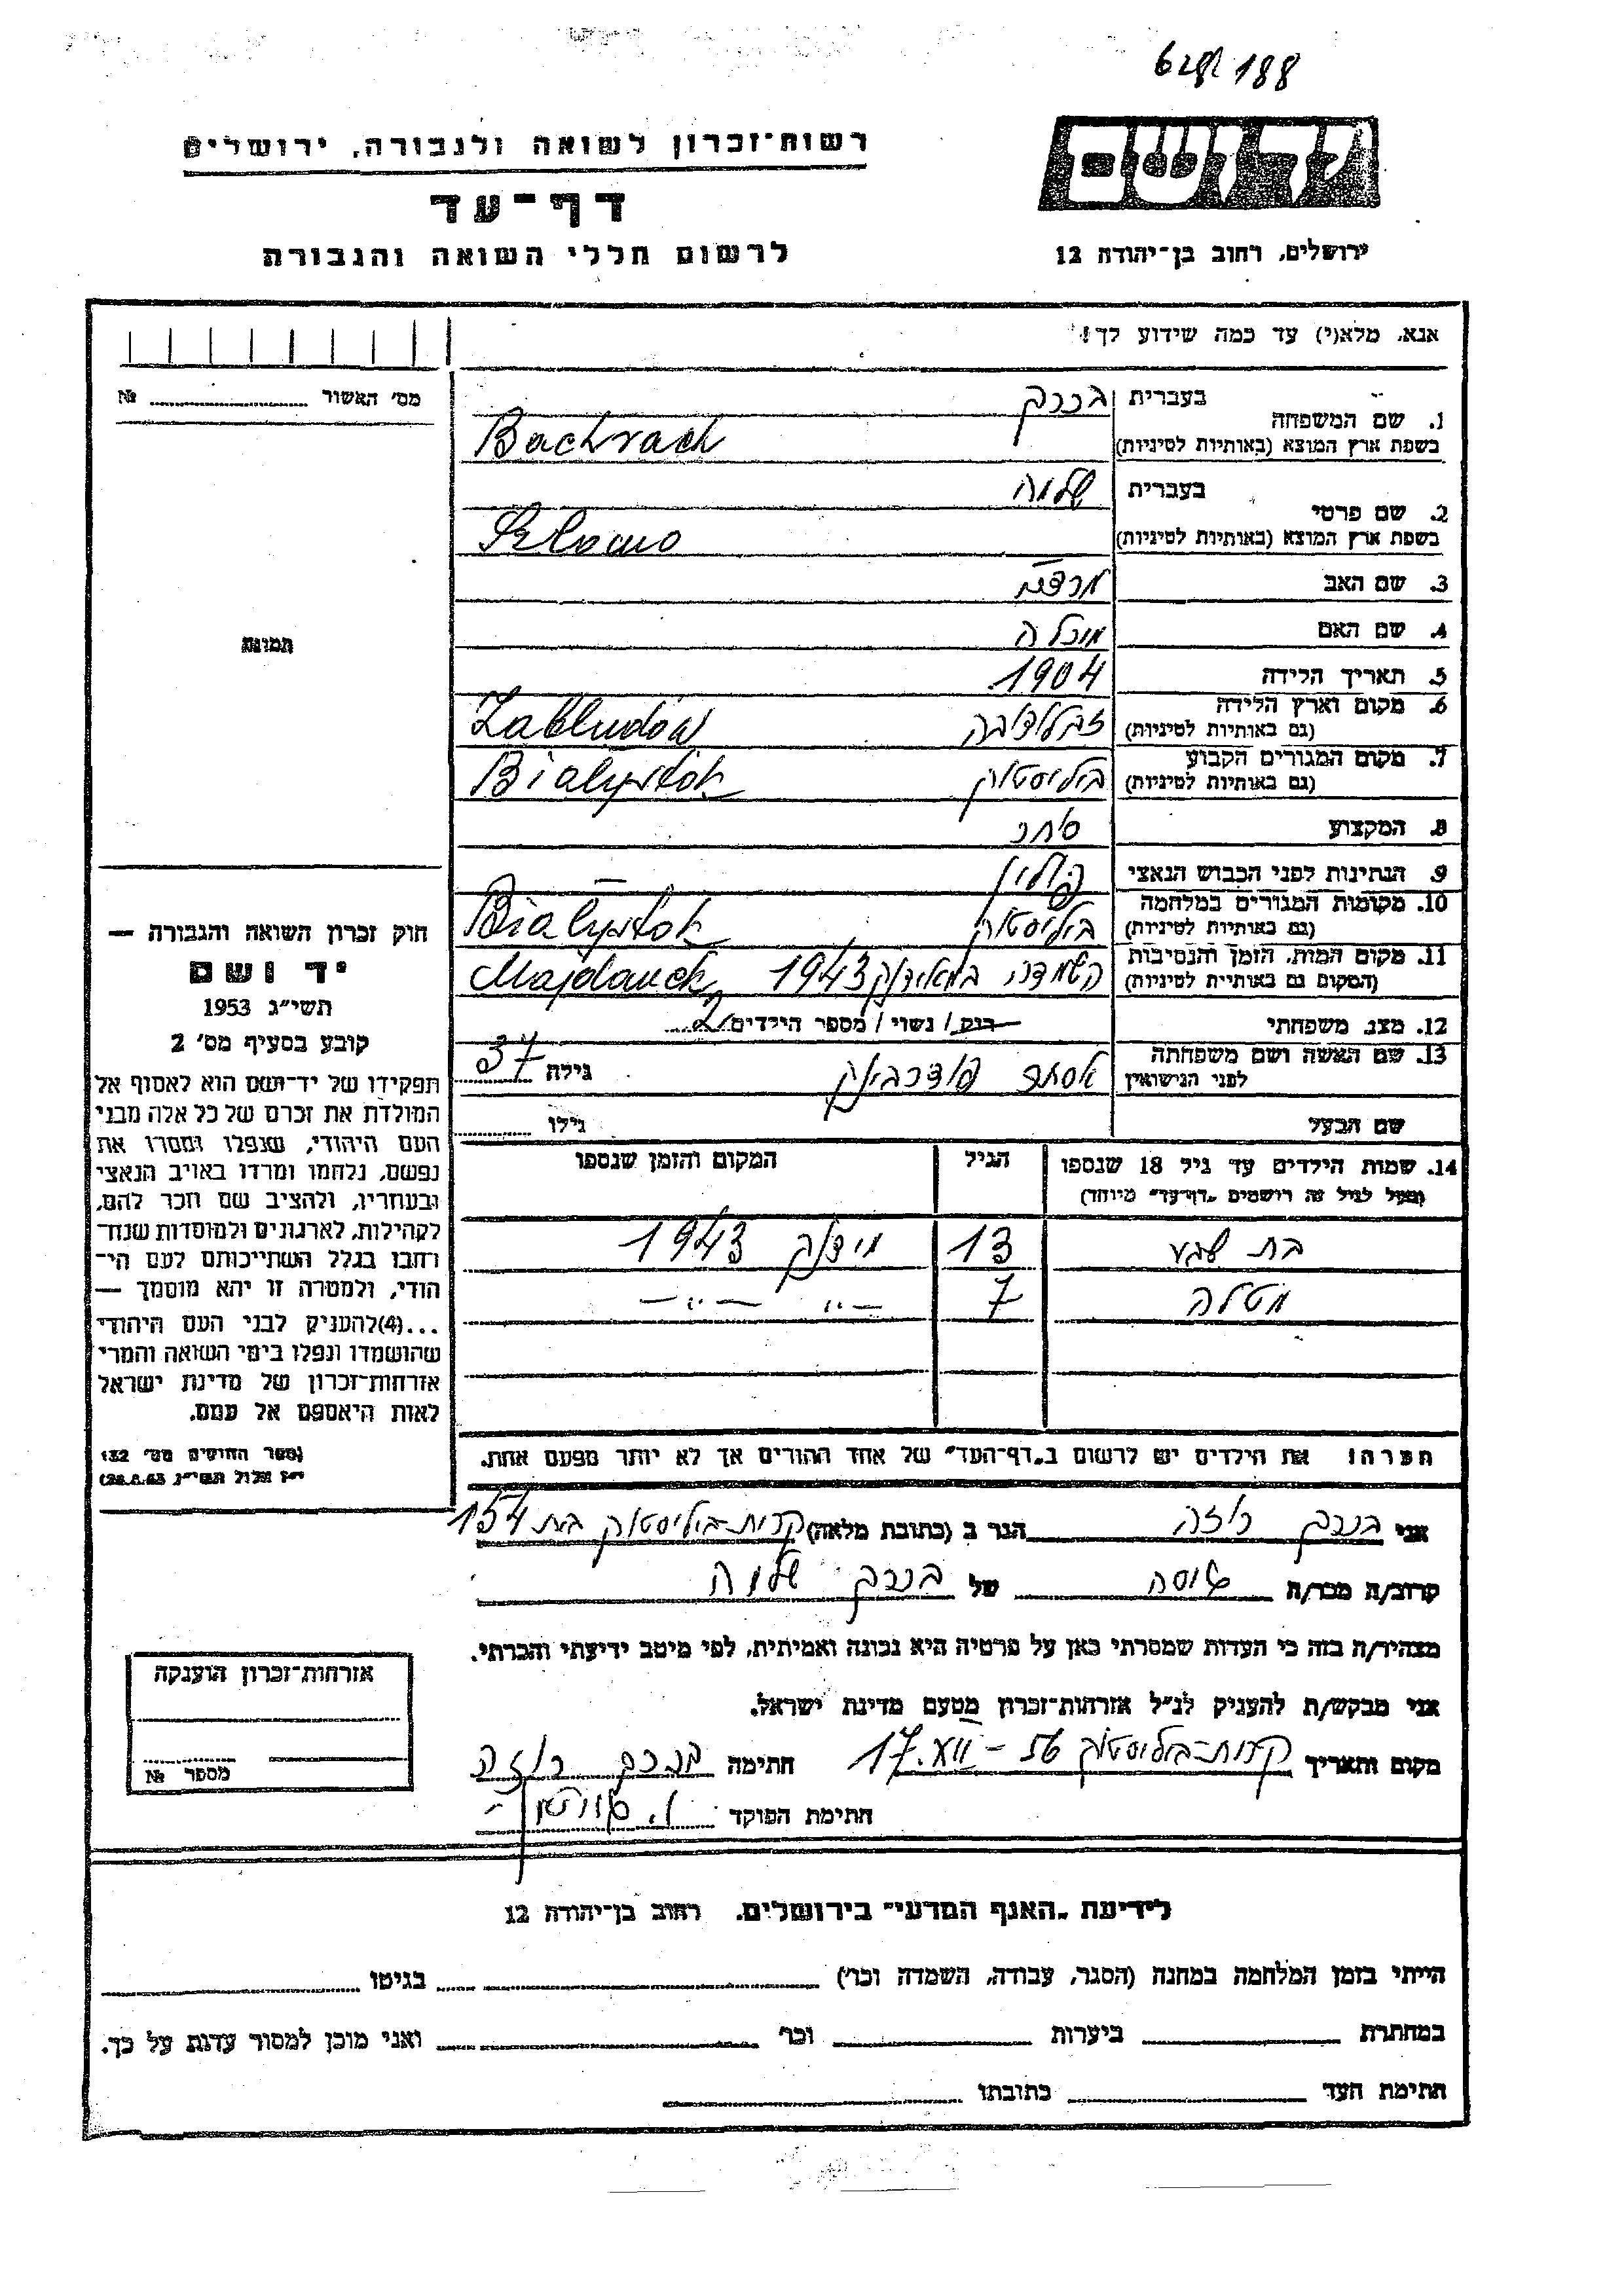 188
רשות־זכרון לשואה ולגבורה, ירושלים
דף־עד
לרשום חללי השואה והגבורה
יד ושם
ירושלים, רחוב בן־יהודה 12
אנא, מלא(י) עד כמה שידוע לך!
מס' האשור № 
תמונה
1. שם המשפחה
בעברית בכרך
בשפת ארץ המוצא (באותיות לטיניות) Bachrach
2. שם פרטי
בעברית שלמה
בשפת ארץ המוצא (באותיות לטיניות) Szlomo
3. שם האב מרדכי
4. שם האם
5. תאריך הלידה 1904
6. מקום וארץ הלידה זבלודובה Zabludów
(גם באותיות לטיניות)
7. מקום המגורים הקבוע ביליסטוק Bialystok
(גם באותיות לטיניות)
8. המקצוע סוחר
9. הנתינות לפני הכבוש הנאצי פולין
10. מקומות המגורים במלחמה ביליסטוק Bialystok
(גם באותיות לטיניות)
11. מקום המות, הזמן והנסיבות השמדה במאידנק 1943 Majdanek
(המקום גם באותיות לטיניות)
12. מצב משפחתי רווק / נשוי / מספר הילדים 2
13. שם האשה ושם משפחתה אסתר גילה 37
לפני הנישואין
שם הבעל גילו
14. שמות הילדים עד גיל 18 שנספו הגיל המקום והזמן שנספו
(מעל לגיל זה רושמים "דף־עד" מיוחד)
בת שבע 13 מידנק 1943
מטלה 7 — " — " —
הערה: את הילדים יש לרשום ב"דף־העד" של אחד ההורים אך לא יותר מפעם אחת.
חוק זכרון השואה והגבורה —
יד ושם
תשי"ג 1953
קובע בסעיף מס' 2
תפקידו של יד־ושם הוא לאסוף אל
המולדת את זכרם של כל אלה מבני
העם היהודי, שנפלו ומסרו את
נפשם, נלחמו ומרדו באויב הנאצי
ובעוזריו, ולהציב שם וזכר להם,
לקהילות, לארגונים ולמוסדות שנח־
רבו בגלל השתייכותם לעם הי־
הודי, ולמטרה זו יהא מוסמך —
...(4) להעניק לבני העם היהודי
שהושמדו ונפלו בימי השואה והמרי
אזרחות־זכרון של מדינת ישראל
לאות היאספם אל עמם.
(ספר החוקים מס' 132
י"ז אלול תשי"ג 28.8.53)
אני בכרך רוזה הגר ב (כתובת מלאה) קרית־ביליסטוק בית 154
קרוב/ה מכר/ה גיסה של בכרך שלמה
מצהיר/ה בזה כי העדות שמסרתי כאן על פרטיה היא נכונה ואמיתית, לפי מיטב ידיעתי והכרתי.
אני מבקש/ת להעניק לנ"ל אזרחות־זכרון מטעם מדינת ישראל.
מקום ותאריך קרית־ביליסטוק 17.XII – 56 חתימה בכרך רוזה
חתימת הפוקד
אזרחות־זכרון הוענקה
מספר №
לידיעת "האגף המדעי" בירושלים. רחוב בן־יהודה 12
הייתי בזמן המלחמה במחנה (הסגר, עבודה, השמדה וכו') בגיטו
במחתרת ביערות וכו' ואני מוכן למסור עדות על כך.
חתימת העד כתובתו